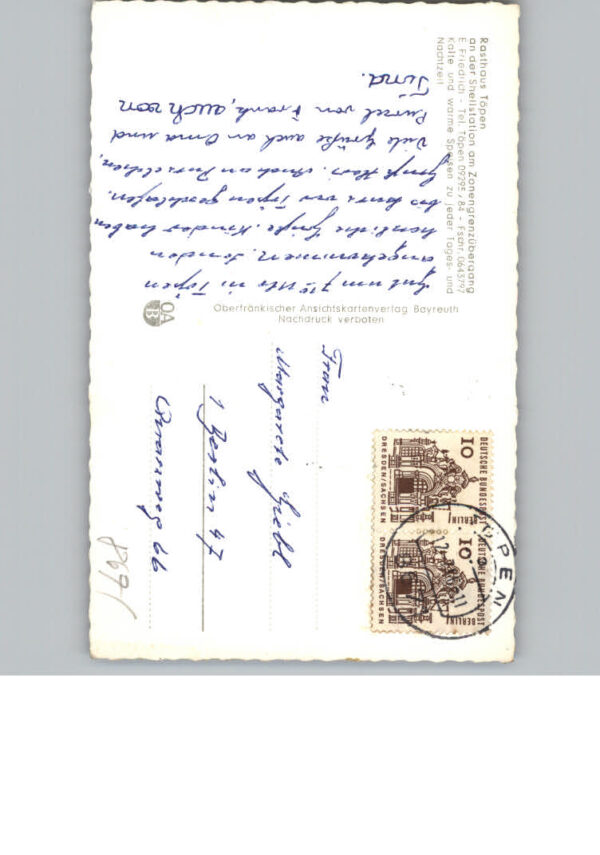 Rasthaus Töpen
an der Shellstation am Zonengrenzübergang
E. Friedrich - Tel. Töpen 09295/84 - Fschr. 0643797
Kalte und warme Speisen zu jeder Tages- und
Nachtzeit
Gut um 7 Uhr in Töpen
angekommen. Senden
herzliche Grüße. Kinder haben
bis kurz vor Töpen geschlafen.
Auch an
Viele Grüße auch an Oma und
Purzel von Frank, auch von
Timo.
OA
B
Oberfränkischer Ansichtskartenverlag Bayreuth
Nachdruck verboten
Frau
Margarete
1 Berlin 47
66
DEUTSCHE BUNDESPOST
BERLIN
10
DRESDEN/SACHSEN
DEUTSCHE BUNDESPOST
BERLIN
10
DRESDEN/SACHSEN
TÖPEN